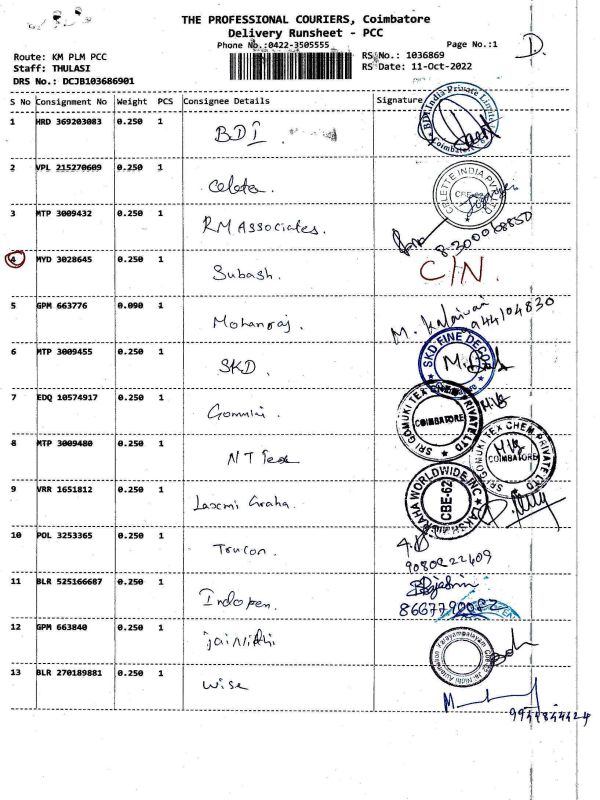 THE PROFESSIONAL COURIERS, Coimbatore
Delivery Runsheet - PCC
Phone No.:0422-3505555
Page No.:1
D.
Route: KM PLM PCC
RS No.: 1036869
Staff: THULASI
RS Date: 11-Oct-2022
DRS No.: DCJB103686901
S No Consignment No Weight PCS Consignee Details Signature
1 HRD 369203083 0.250 1 BDI.
BDI India Private Limited Coimbatore
2 VPL 215270609 0.250 1 Celete.
CELETTE INDIA PVT LTD CBE-22
3 MTP 3009432 0.250 1 RM Associates.
8300068850
4 MYD 3028645 0.250 1 Subash. C/N.
5 GPM 663776 0.090 1 Mohanraj. M. Kalaivani
944104830
6 MTP 3009455 0.250 1 SKD.
SKD FINE DECOR
7 EDQ 10574917 0.250 1 Gomuki.
SRI GOMUKI TEX CHEM PRIVATE LTD COIMBATORE
8 MTP 3009480 0.250 1 NT Tex
SRI GOMUKI TEX CHEM PRIVATE LTD COIMBATORE
9 VRR 1651812 0.250 1 Laxmi Graha.
LAKSHMI GRAHA WORLDWIDE INC CBE-62
10 POL 3253365 0.250 1 Trucon.
9080222409
11 BLR 525166687 0.250 1 Indopen.
8667790082
12 GPM 663840 0.250 1 jai Nidhi
13 BLR 270189881 0.250 1 Wise
9944844424